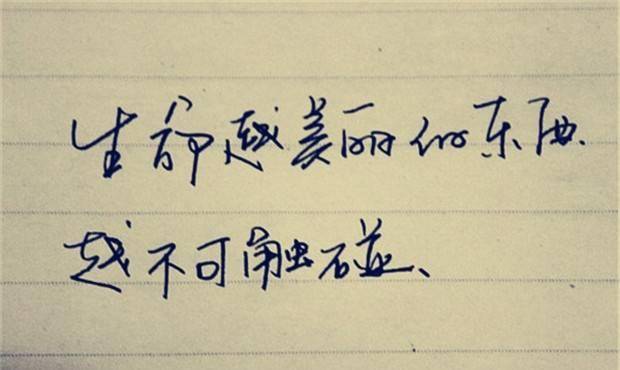 生命越美丽的东西.
越不可触碰、